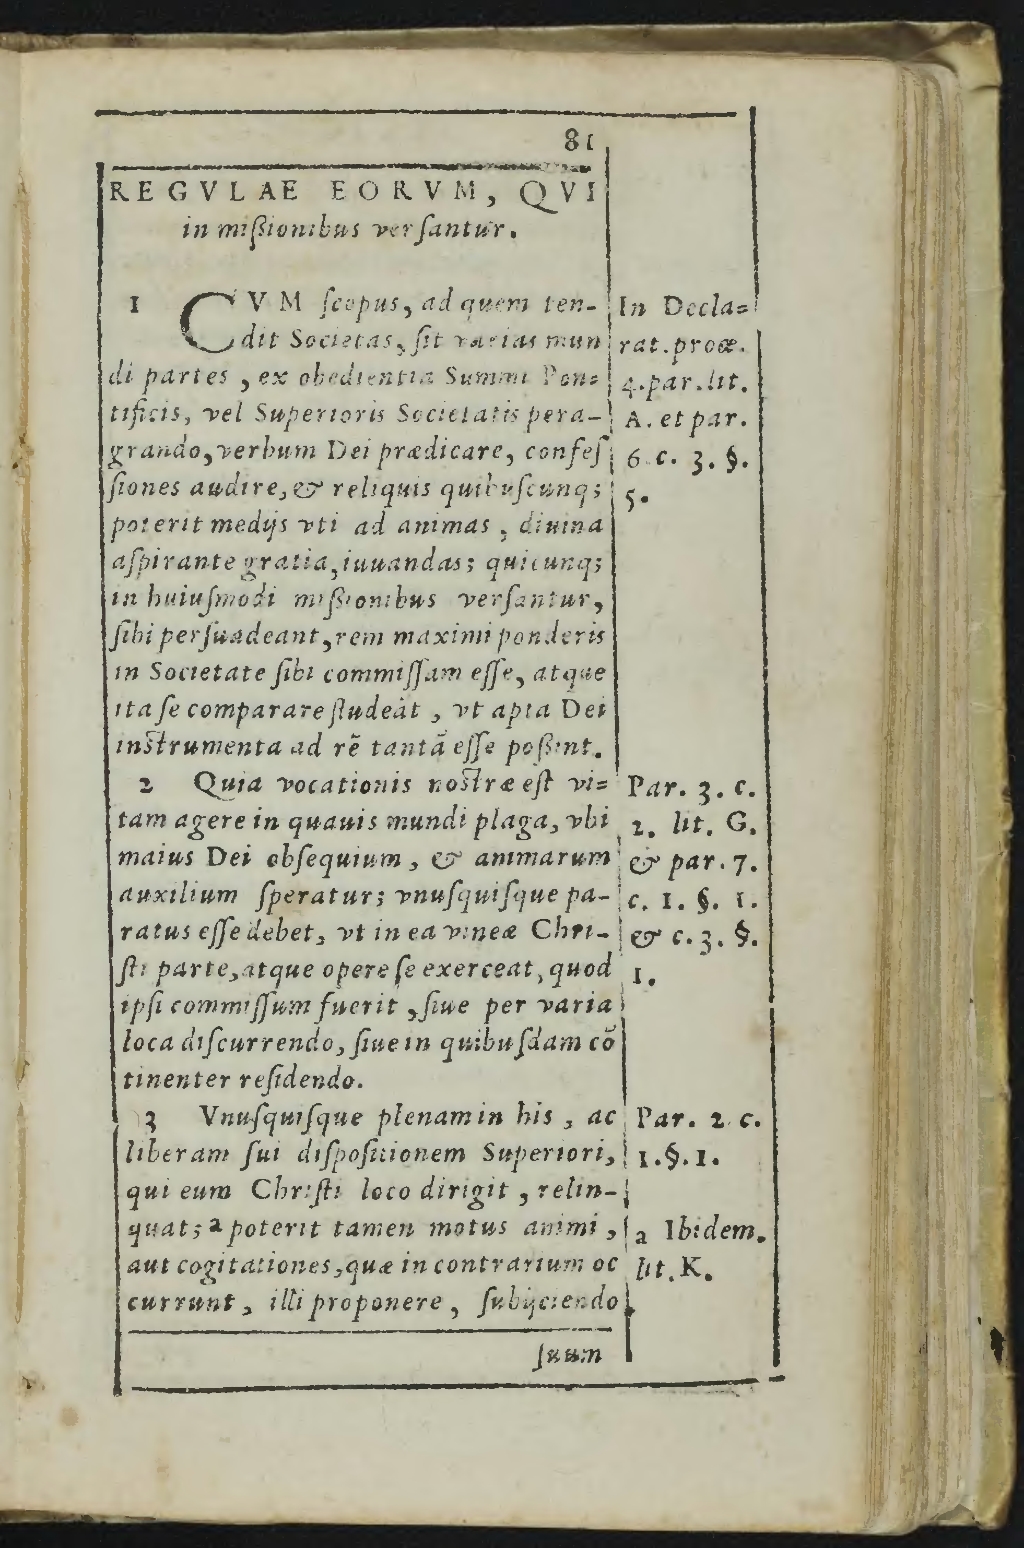 81
REGVLAE EORVM, QVI
in miſsionibus verſantur.
1 CVM ſcopus, ad quem ten-
dit Societas, ſit varias mun
di partes, ex obedientia Summi Pon=
tificis, vel Superioris Societatis pera-
grando, verbum Dei prædicare, confeſ
ſiones audire, & reliquis quibuſcunq;
poterit medijs vti ad animas, diuina
aſpirante gratia, iuuandas; quicunq;
in huiuſmodi miſsionibus verſantur,
ſibi perſuadeant, rem maximi ponderis
in Societate ſibi commiſſam eſſe, atque
ita ſe comparare ſtudeāt, vt apta Dei
instrumenta ad rē tantā eſſe poſsint.
2 Quia vocationis nostræ eſt vi=
tam agere in quauis mundi plaga, vbi
maius Dei obſequium, & animarum
auxilium ſperatur; vnuſquiſque pa-
ratus eſſe debet, vt in ea vineæ Chri-
ſti parte, atque opere ſe exerceat, quod
ipſi commiſſum fuerit, ſiue per varia
loca diſcurrendo, ſiue in quibuſdam cō
tinenter reſidendo.
3 Vnuſquiſque plenam in his, ac
liberam ſui diſpoſitionem Superiori,
qui eum Chriſti loco dirigit, relin-
quat; a poterit tamen motus animi,
aut cogitationes, quæ in contrarium oc
currunt, illi proponere, ſubijciendo
ſuum
In Decla=
rat. proœ.
4. par. lit.
A. et par.
6. c. 3. §.
5.
Par. 3. c.
2. lit. G.
& par. 7.
c. 1. §. 1.
& c. 3. §.
1.
Par. 2. c.
1. §. 1.
a Ibidem.
lit. K.